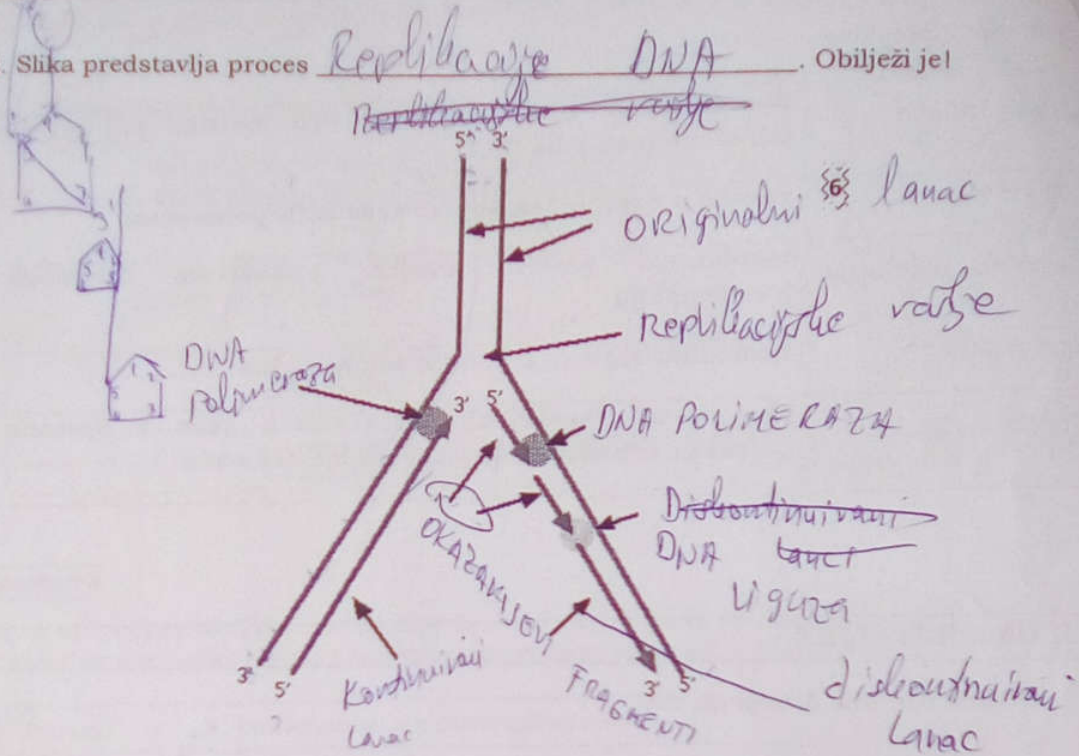 . Slika predstavlja proces Replikacije DNA. Obilježi je!
Replikacijske vilje
5' 3'
ORiginalni 6 lanac
Replikacijske
DNA
polimeraza
3' 5'
DNA POLIMERAZA
Diskontinuirani
DNA lanci
ligaza
OKAZAKIJEVI
FRAGMENTI
Kontinuirani
Lanac
3' 5'
?
3' 5'
diskontinuirani
Lanac